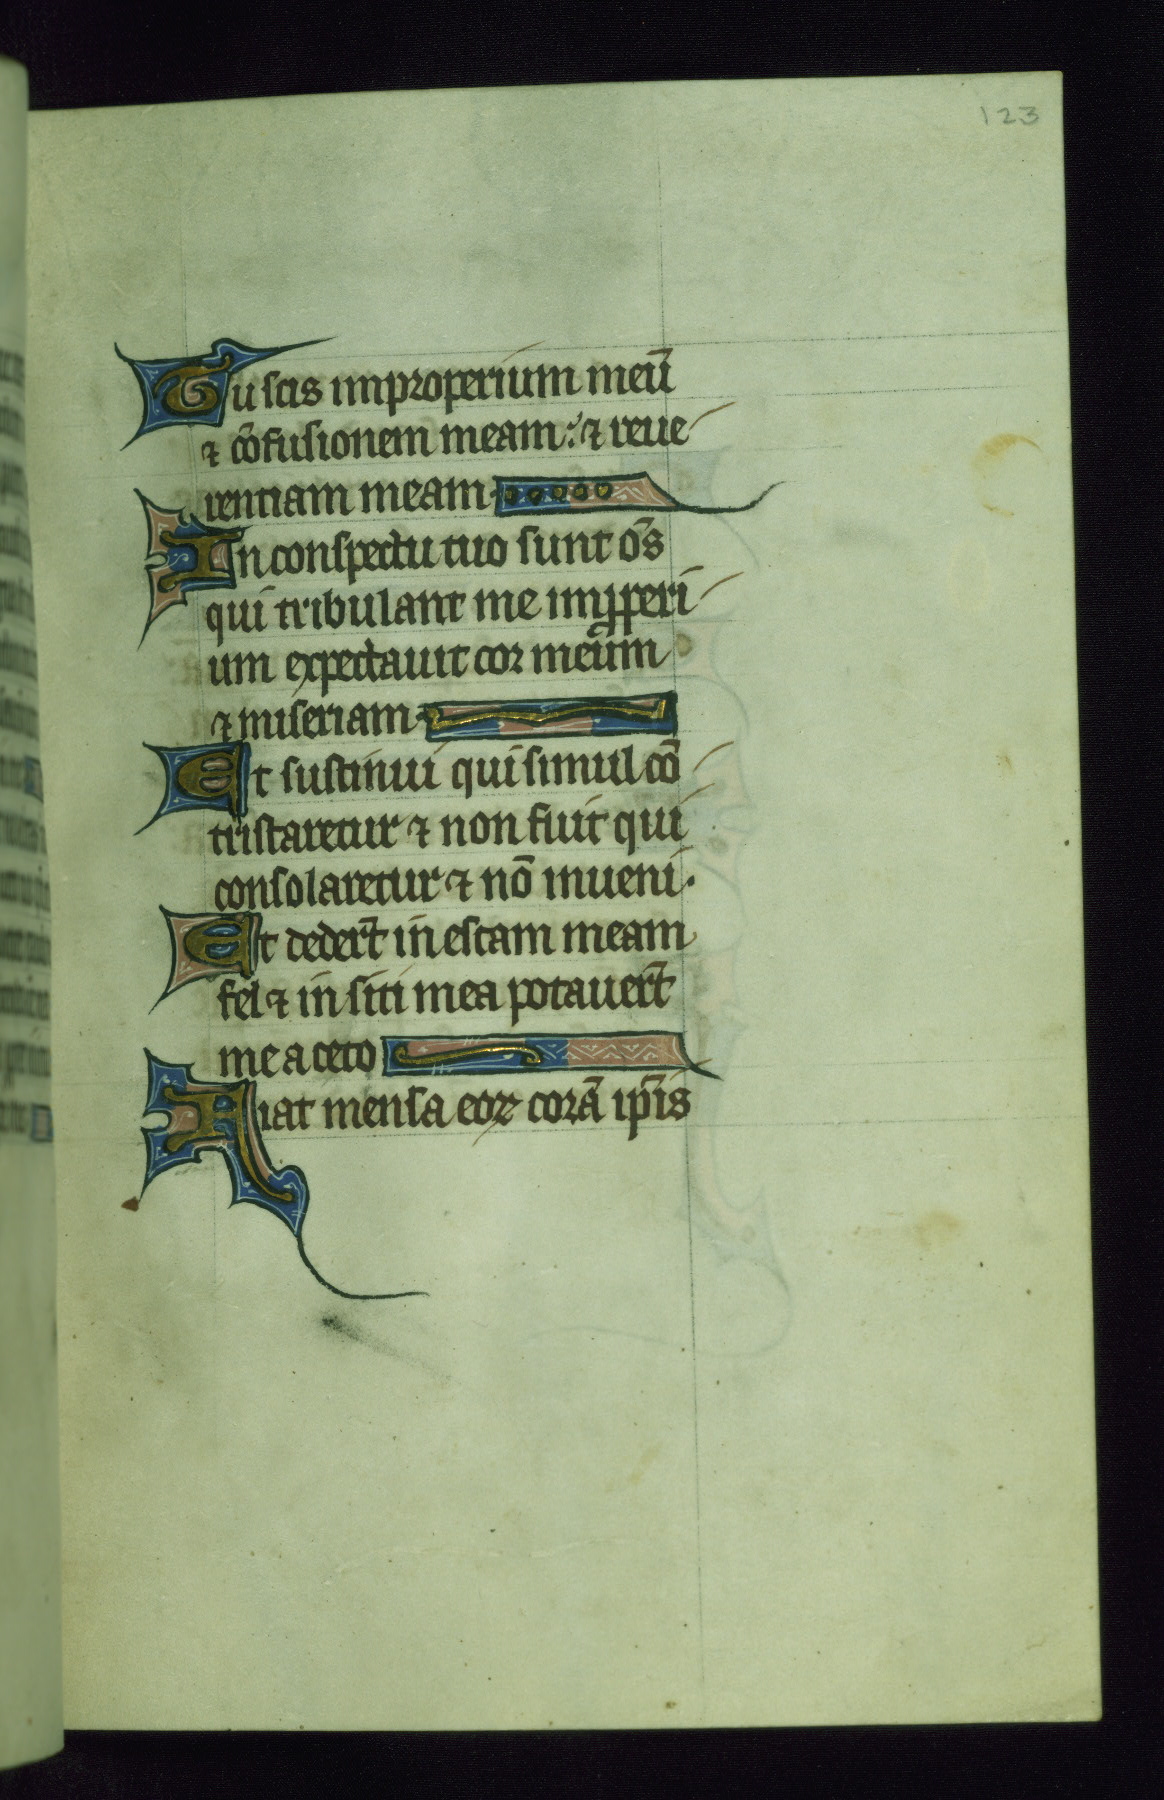 123
Tu scis improperium meū
⁊ cōfusionem meam: ⁊ reue
rentiam meam
In conspectu tuo sunt ōs
qui tribulant me imꝓperi
um expectauit cor meum
⁊ miseriam
Et sustinui qui simul cō
tristaretur ⁊ non fuit qui
consolaretur ⁊ nō inueni.
Et dedert̄ in escam meam
fel ⁊ in siti mea potauert̄
me aceto
Fiat mensa eoꝝ corā ip̄is